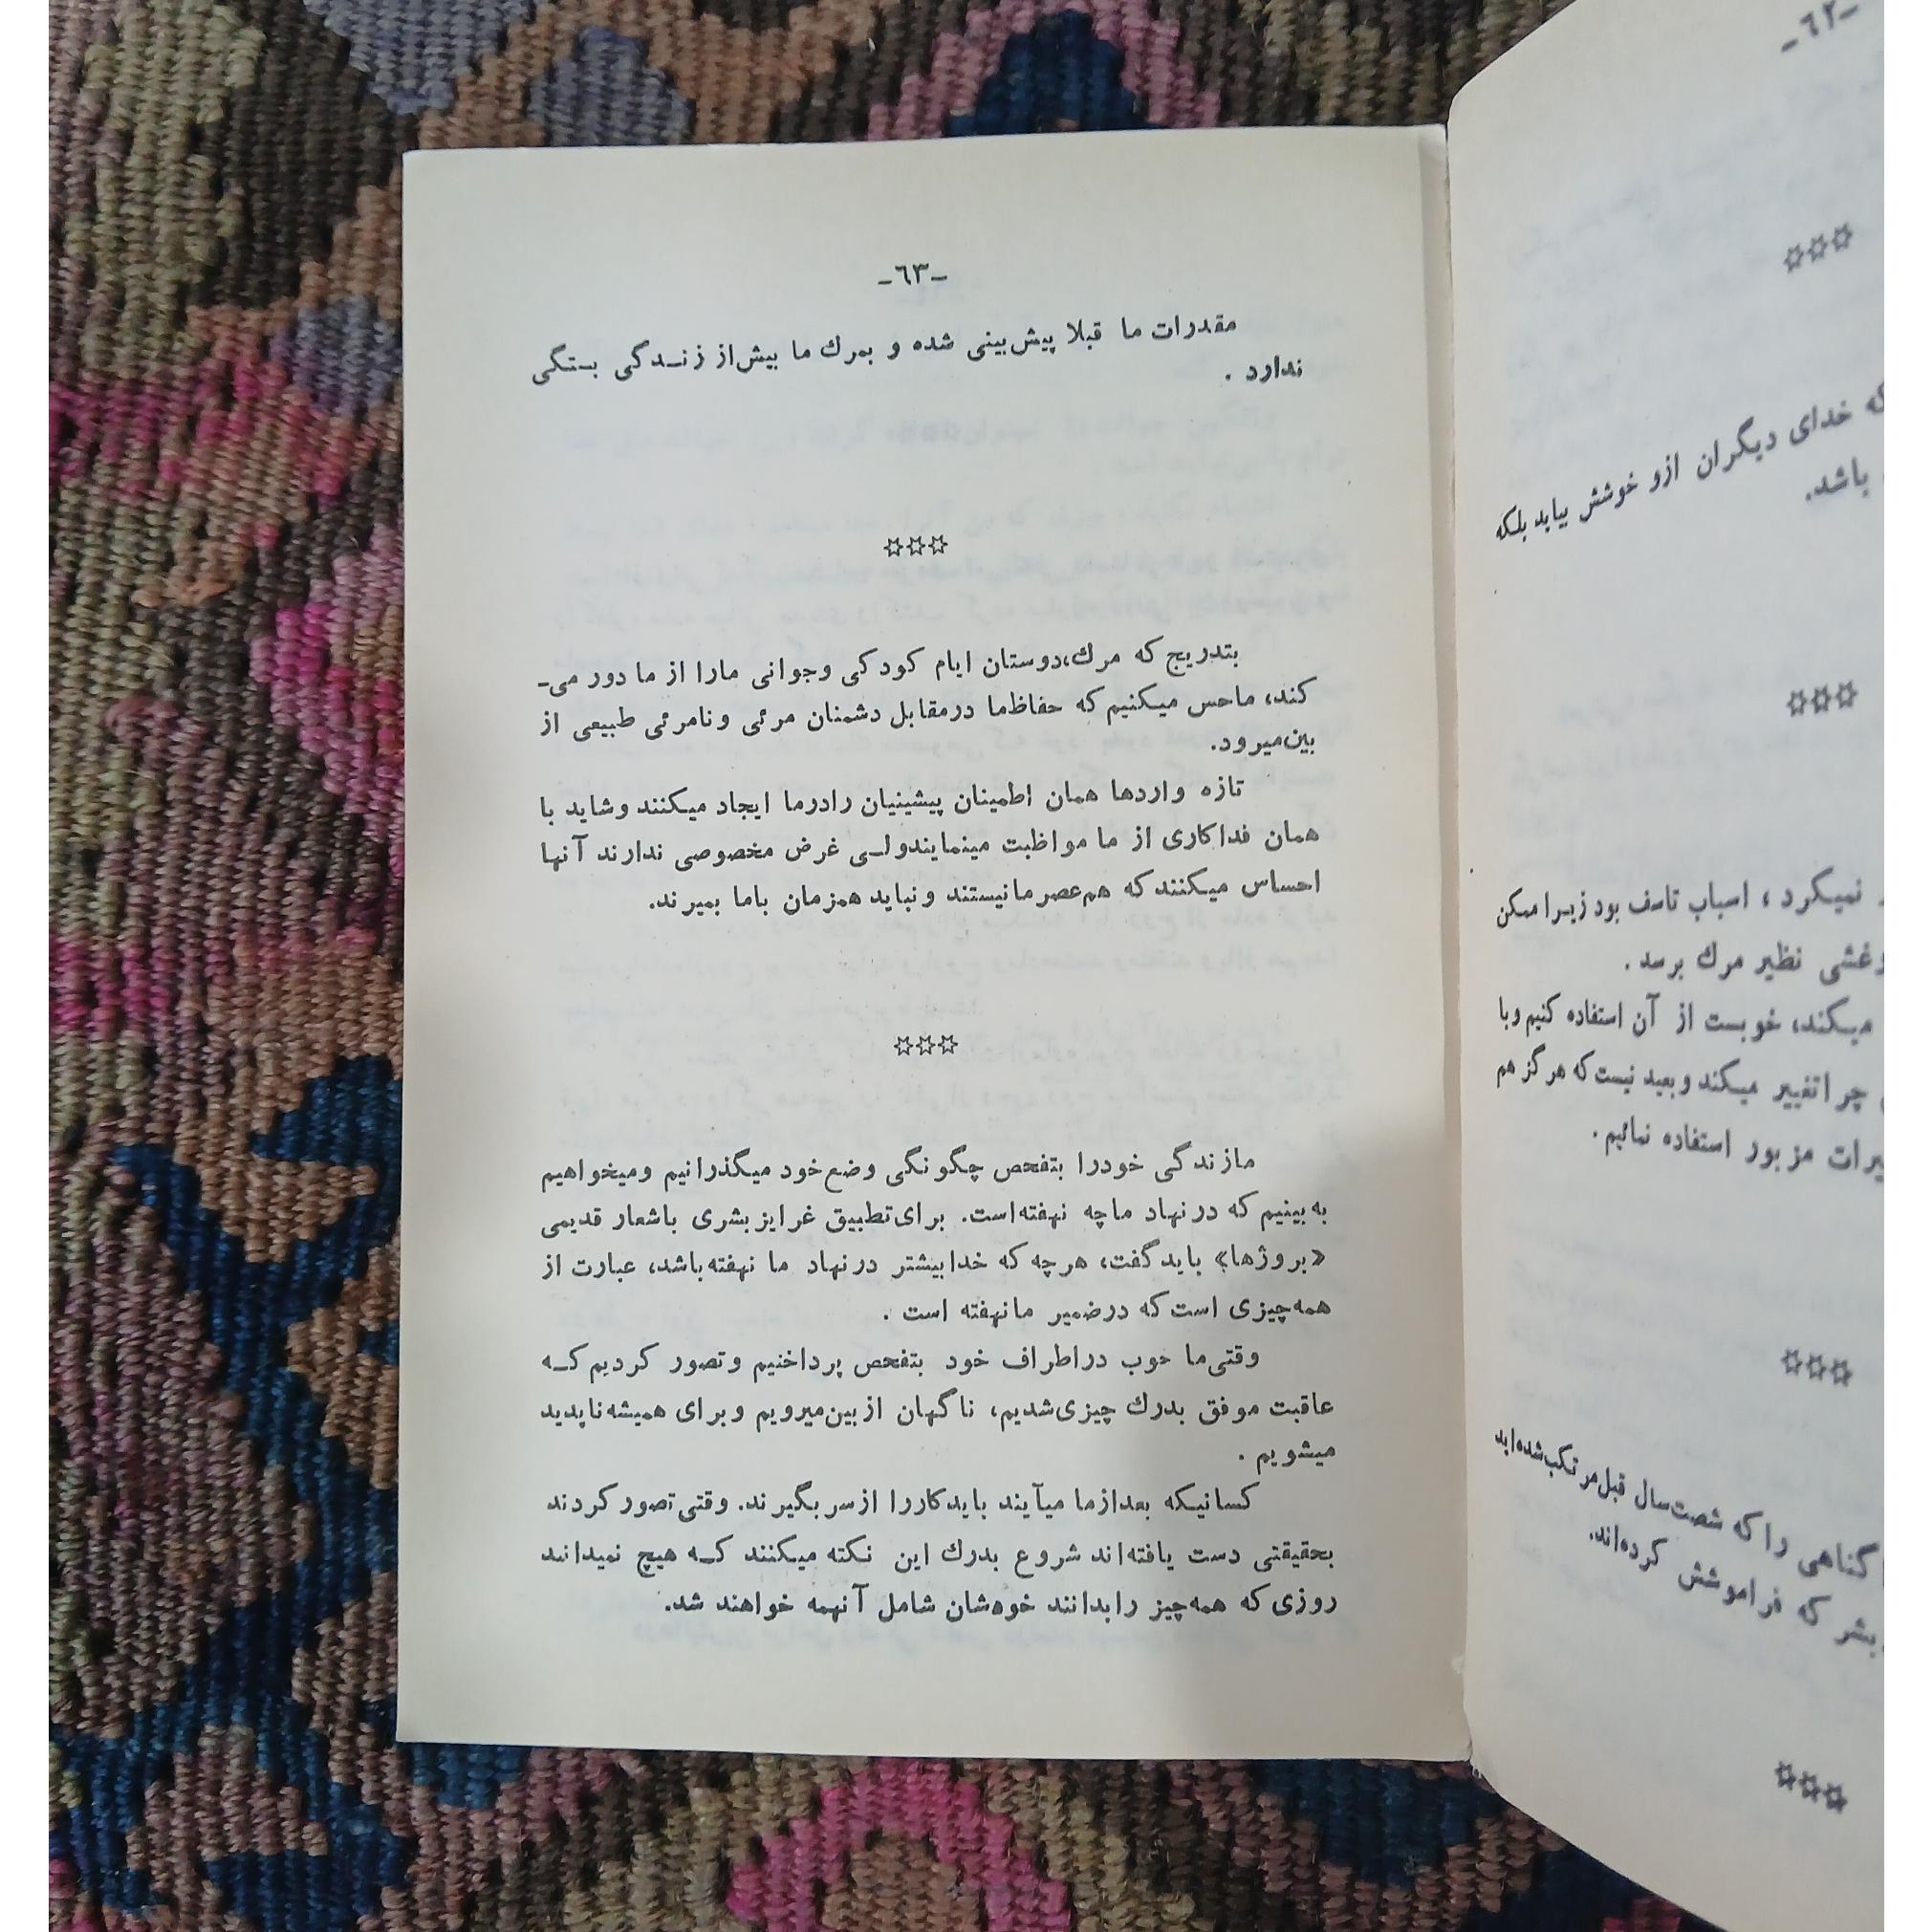 -٦٢-
✡✡✡
که خدای دیگران ازو خوشش بیاید بلکه
باشد.
✡✡✡
نمیکرد ، اسباب تاسف بود زیرا ممکن
نظیر مرك برسد .
میکند، خوبست از آن استفاده کنیم وبا
چرا تغییر میکند و بعید نیست که هرگز هم
مزبور استفاده نمائیم .
✡✡✡
گناهی را که شصت سال قبل مرتکب شده‌اید
بشر که فراموشش کرده‌اند.
✡✡✡
-٦٣-
مقدرات ما قبلا پیش‌بینی شده و بمرك ما بیش‌از زندگی بستگی
ندارد .
✡✡✡
بتدریج که مرك،دوستان ایام کودکی وجوانی مارا از ما دور می-
کند، ماحس میکنیم که حفاظ‌ما درمقابل دشمنان مرئی ونامرئی طبیعی از
بین‌میرود.
تازه واردها همان اطمینان پیشینیان رادرما ایجاد میکنند وشاید با
همان فداکاری از ما مواظبت مینمایندولی غرض مخصوصی ندارند آنها
احساس میکنند که هم‌عصر مانیستند و نباید همزمان باما بمیرند.
✡✡✡
مازندگی خودرا بتفحص چگونگی وضع‌خود میگذرانیم ومیخواهیم
به‌بینیم که درنهاد ماچه نهفته‌است. برای‌تطبیق غرایز بشری باشعار قدیمی
«بروژها» باید گفت، هرچه که خدابیشتر درنهاد ما نهفته‌باشد، عبارت از
همه‌چیزی است که درضمیر مانهفته است .
وقتی‌ما خوب دراطراف خود بتفحص پرداختیم وتصور کردیم که
عاقبت موفق بدرك چیزی‌شدیم، ناگهان ازبین‌میرویم وبرای همیشه‌ناپدید
میشویم .
کسانیکه بعدازما میآیند بایدکاررا ازسربگیرند. وقتی‌تصورکردند
بحقیقتی دست یافته‌اند شروع بدرك این نکته میکنند که هیچ نمیدانند
روزی که همه‌چیز رابدانند خودشان شامل آنهمه خواهند شد.